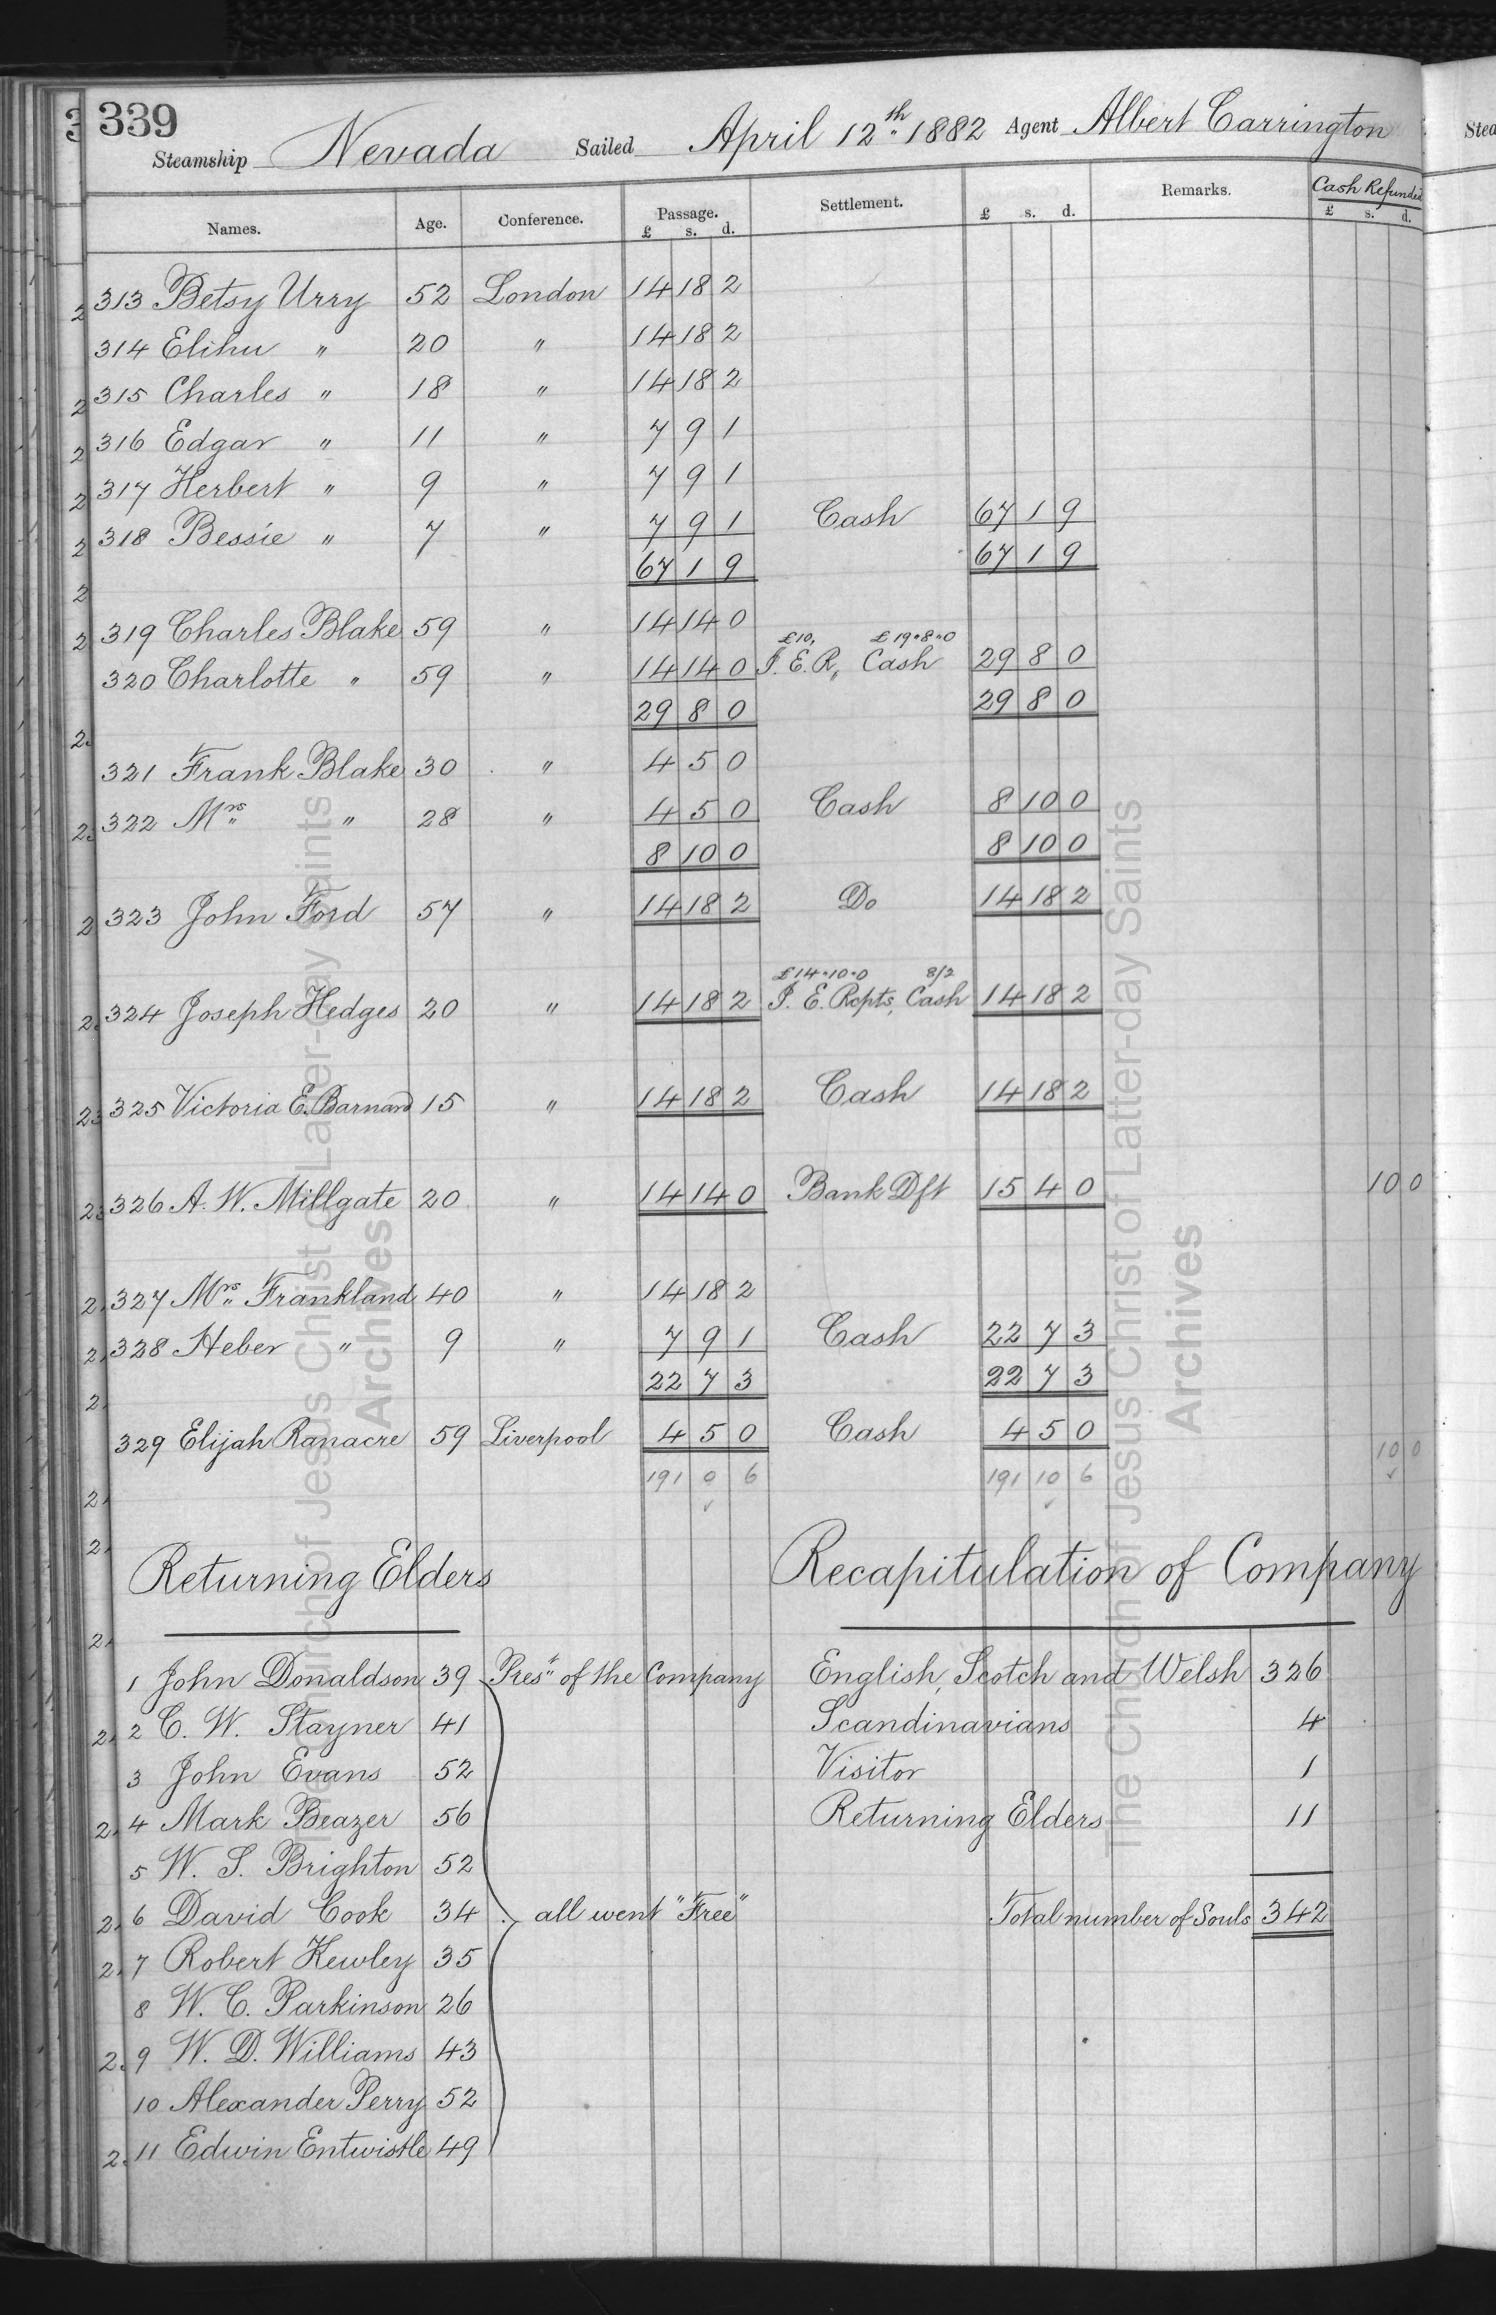 339
Steamship Nevada Sailed April 12th 1882 Agent Albert Carrington
Names. Age. Conference. Passage. £ s. d. Settlement. £ s. d. Remarks. Cash Refunded £ s. d.
313 Betsy Urry 52 London 14 18 2
314 Elihu " 20 " 14 18 2
315 Charles " 18 " 14 18 2
316 Edgar " 11 " 7 9 1
317 Herbert " 9 " 7 9 1
318 Bessie " 7 " 7 9 1 Cash 67 1 9
67 1 9 67 1 9
319 Charles Blake 59 " 14 14 0
£10, £19"8"0
320 Charlotte " 59 " 14 14 0 I. E. R, Cash 29 8 0
29 8 0 29 8 0
321 Frank Blake 30 " 4 5 0
322 Mrs " 28 " 4 5 0 Cash 8 10 0
8 10 0 8 10 0
323 John Ford 57 " 14 18 2 Do 14 18 2
£14"10"0 8/2
324 Joseph Hedges 20 " 14 18 2 I. E. Rcpts, Cash 14 18 2
325 Victoria E. Barnard 15 " 14 18 2 Cash 14 18 2
326 A. W. Millgate 20 " 14 14 0 Bank Dft 15 4 0 10 0
327 Mrs Frankland 40 " 14 18 2
328 Heber " 9 " 7 9 1 Cash 22 7 3
22 7 3 22 7 3
329 Elijah Ranacre 59 Liverpool 4 5 0 Cash 4 5 0
191 0 6 191 10 6 10 0
Returning Elders
1 John Donaldson 39 Prest of the Company
2 C. W. Stayner 41
3 John Evans 52
4 Mark Beazer 56
5 W. S. Brighton 52
6 David Cook 34 all went "Free"
7 Robert Kewley 35
8 W. C. Parkinson 26
9 W. D. Williams 43
10 Alexander Perry 52
11 Edwin Entwistle 49
Recapitulation of Company
English, Scotch and Welsh 326
Scandinavians 4
Visitor 1
Returning Elders 11
Total number of Souls 342
The Church of Jesus Christ of Latter-day Saints
Archives
The Church of Jesus Christ of Latter-day Saints
Archives